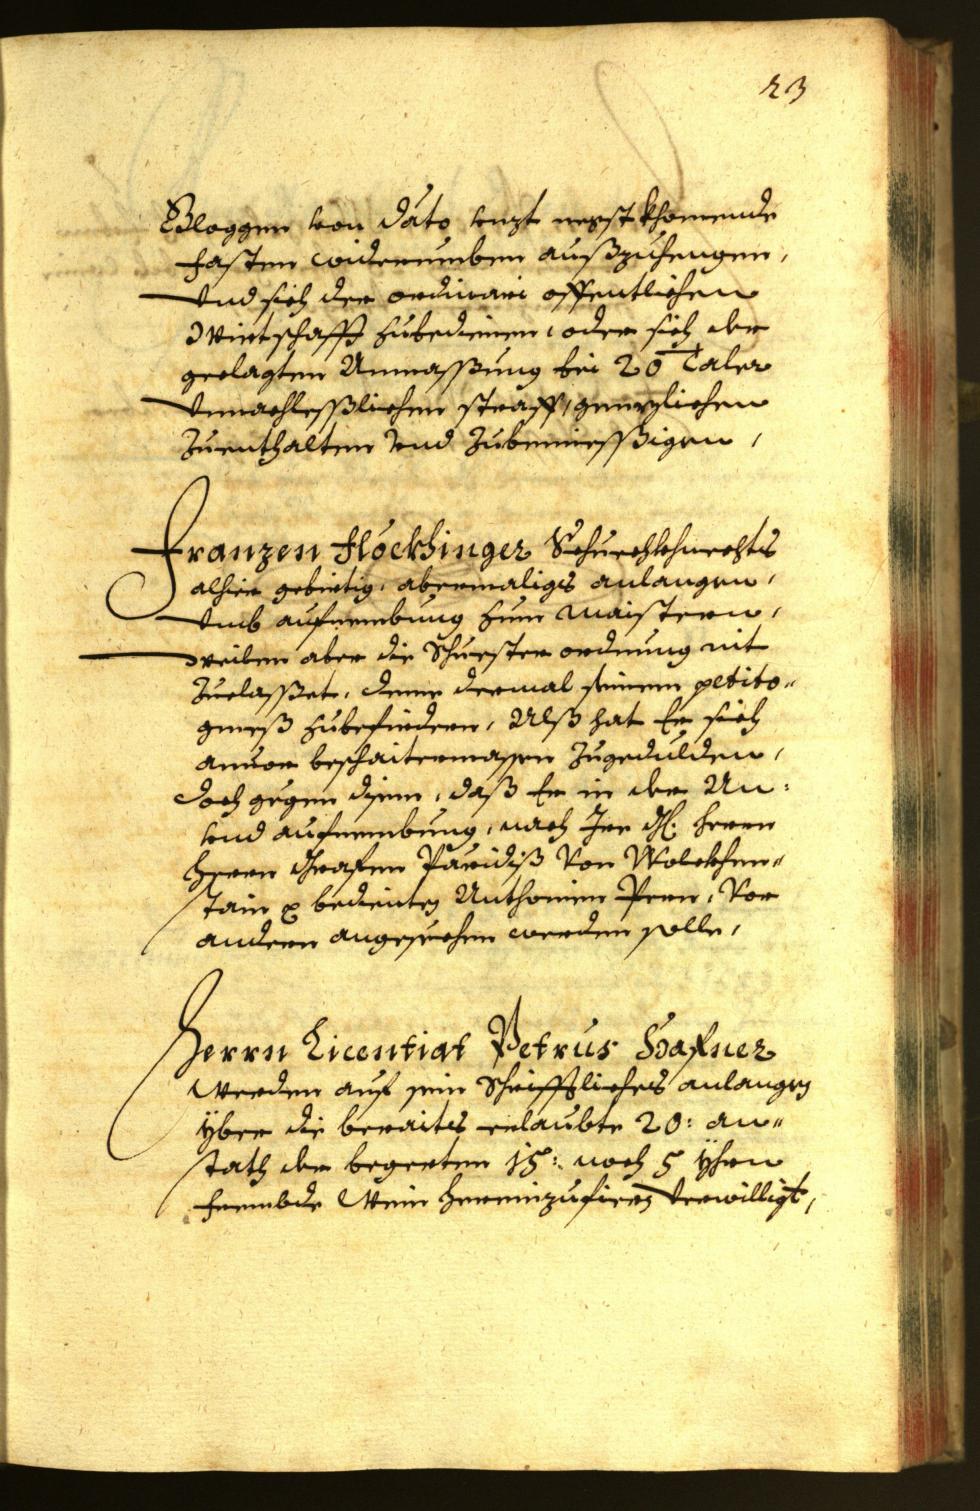 23
Gloggen von dato biß negst khomende
Fasten widerumben außzuhengen,
Und sich der ordinari offentlichen
Wirtschafft zubedienen, oder sich der
geclagten Anmassung bei 20 Taler
Unnachleßlichen straff, genzlichen
Zuenthalten und Zubemiessigen,
Franzen Flöckhinger Schuechkhnechts
alhier gebirtig, abermaliges anlangen,
Umb aufnembung zum Maistern,
weilen aber die Schuester ordnung nit
Zuelasset, denne dermal seinem petito
gmeß zubefirdern, Alß hat Er sich
anvor beschaitermassen Zugedulden,
doch gegen disem, daß Er in der An:
und aufnembung, nach Irer Herrn
Herrn Grafen Päridiß Von Wolckhen„
stain bedienten Anthonien Prem, Vor
andern angesechen werden solle,
Herrn Licentiat Petrus Hafner
Werden auf sein Schrifftliches anlangen
yber die beraits erlaubte 20: an„
stath der begerten 15: noch 5 Yhrn
frembde Wein hereinzufiern verwilligt,